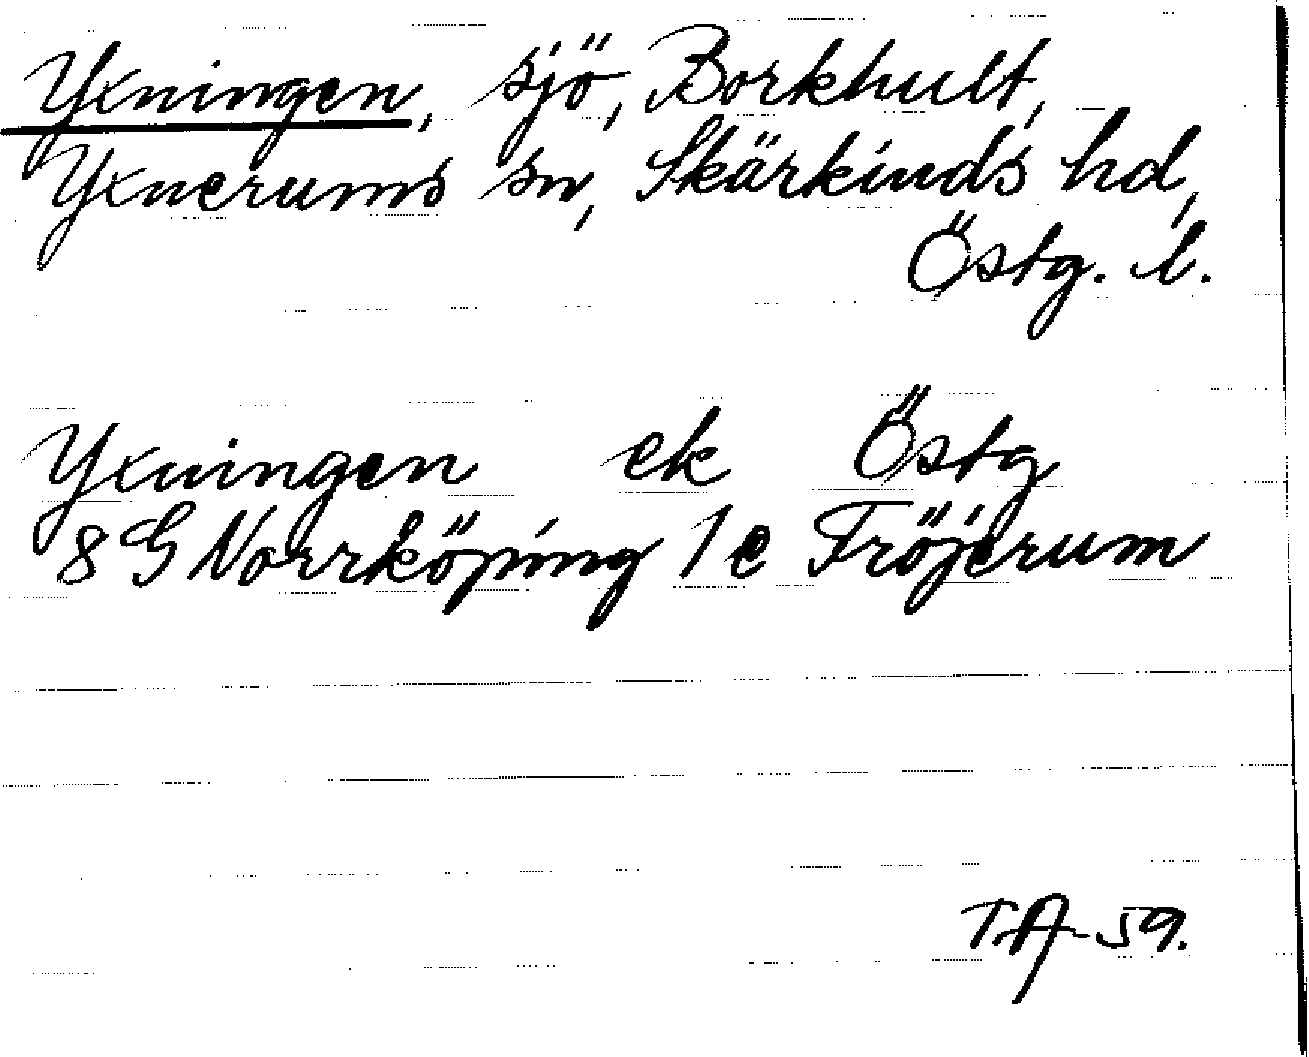 Yxningen, sjö, Borkhult,
Yxnerums sn, Skärkinds hd,
Östg. l.
Yxningen ek Östg
8G Norrköping 1e Fröjerum
TA-59.